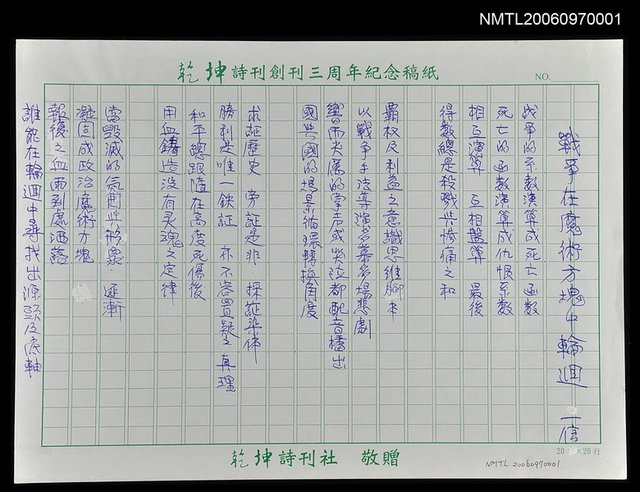 NMTL20060970001
乾坤詩刊創刊三周年紀念稿紙
NO.
戰爭在魔術方塊中輪迴 一信
战爭的系數演算成死亡函數
死亡的函數演算成仇恨系數
相互演算 互相盤算 最後
得數總是殺戮與慘痛之和
霸权及利益之意識思维腳本
以戰爭手法導演多幕多場悲劇
響雨夾屬的掌声或哭泣都配音播出
國與國的場景循環轉換角度
求証歷史 旁証是非 採証藥佈
勝利是唯一鉄証 亦不容置疑之真理
和平總跟隨在高度死傷後
用血鑄造没有灵魂之定律
當毀滅的氛围與形象 逐漸
凝固成政治魔術方塊
報復之血雨到處洒落
誰能在輪迴中尋找出源頭及底軸
乾坤詩刊社 敬贈
20×20行
NMTL 20060970001